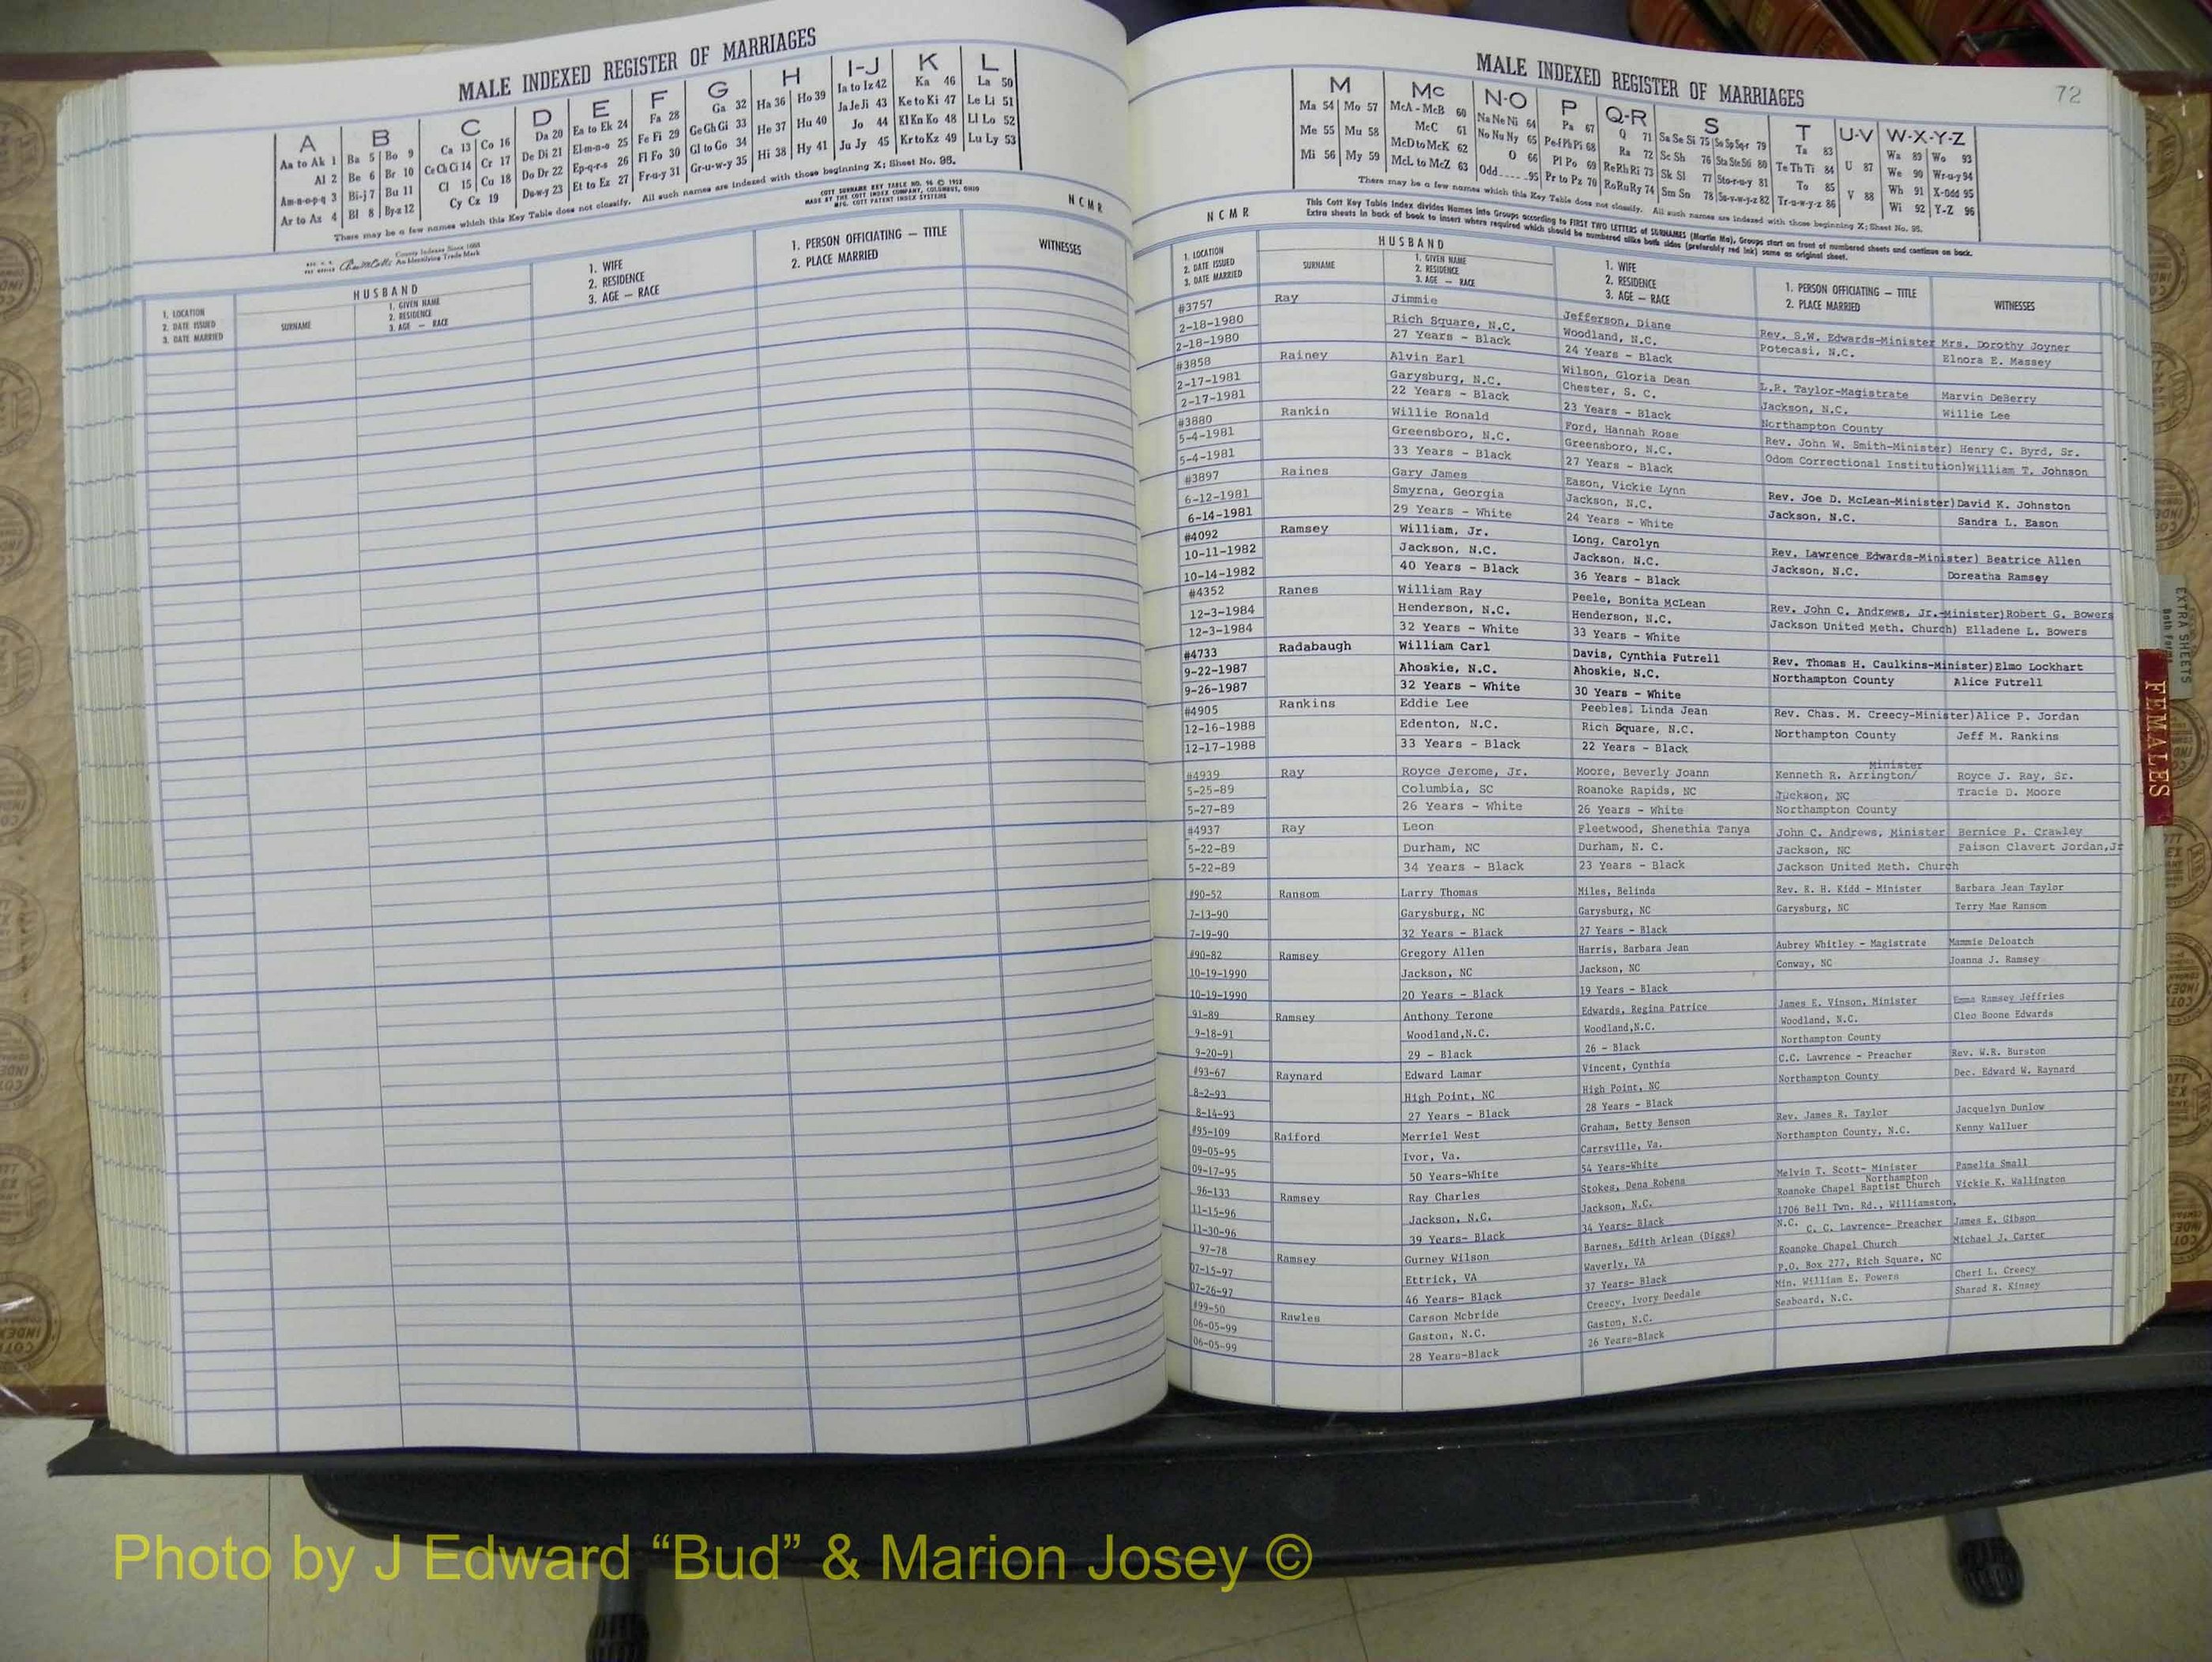 MALE INDEXED REGISTER OF MARRIAGES
A B C D E F G H I-J K L
Aa to Ak 1 Ba 5 Bo 9 Ca 13 Co 16 Da 20 Ea to Ek 24 Fa 28 Ga 32 Ha 36 Ho 39 Ia to Iz 42 Ka 46 La 50
Al 2 Be 6 Br 10 Ce Ch Ci 14 Cr 17 De Di 21 El-m-n-o 25 Fe Fi 29 Ge Gh Gi 33 He 37 Hu 40 Ja Je Ji 43 Ke to Ki 47 Le Li 51
Am-n-o-p-q 3 Bi-j 7 Bu 11 Cl 15 Cu 18 Do Dr 22 Ep-q-r-s 26 Fl Fo 30 Gl to Go 34 Hi 38 Hy 41 Jo 44 Kl Kn Ko 48 Ll Lo 52
Ar to Az 4 Bl 8 By-z 12 Cy Cz 19 Du-w-y 23 Et to Ez 27 Fr-u-y 31 Gr-u-w-y 35 Ju Jy 45 Kr to Kz 49 Lu Ly 53
There may be a few names which this Key Table does not classify. All such names are indexed with those beginning X; Sheet No. 95.
NCMR
HUSBAND
1. LOCATION
2. DATE ISSUED
3. DATE MARRIED
SURNAME
1. GIVEN NAME
2. RESIDENCE
3. AGE — RACE
1. WIFE
2. RESIDENCE
3. AGE — RACE
1. PERSON OFFICIATING — TITLE
2. PLACE MARRIED
WITNESSES
MALE INDEXED REGISTER OF MARRIAGES
72
M Mc N-O P Q-R S T U-V W-X-Y-Z
Ma 54 Mo 57 McA - McB 60 Na Ne Ni 64 Pa 67 Q 71 Sa Se Si 75 So Sp Sq-r 79 Ta 83 U 87 Wa 89 Wo 93
Me 55 Mu 58 McC 61 No Nu Ny 65 Pe-f Ph Pi 68 Ra 72 Sc Sh 76 Sta Ste Sti 80 Te Th Ti 84 V 88 We 90 Wr-u-y 94
Mi 56 My 59 McD to McK 62 O 66 Pl Po 69 Re Rh Ri 73 Sk Sl 77 Sto-r-u-y 81 To 85 Wh 91 X-Odd 95
McL to McZ 63 Odd 95 Pr to Pz 70 Ro Ru Ry 74 Sm Sn 78 Su-v-w-y-z 82 Tr-u-w-y-z 86 Wi 92 Y-Z 96
There may be a few names which this Key Table does not classify. All such names are indexed with those beginning X; Sheet No. 95.
This Cott Key Table Index divides Names into Groups according to FIRST TWO LETTERS of SURNAMES (Martin Ma), Groups start on front of numbered sheets and continue on back.
Extra sheets in back of book to insert where required which should be numbered alike both sides (preferably red ink) same as original sheet.
NCMR
HUSBAND
1. LOCATION
2. DATE ISSUED
3. DATE MARRIED
SURNAME
1. GIVEN NAME
2. RESIDENCE
3. AGE — RACE
1. WIFE
2. RESIDENCE
3. AGE — RACE
1. PERSON OFFICIATING — TITLE
2. PLACE MARRIED
WITNESSES
#3757 Ray Jimmie Jefferson, Diane Rev. S.W. Edwards-Minister Mrs. Dorothy Joyner
2-18-1980 Rich Square, N.C. Woodland, N.C. Potecasi, N.C. Elnora E. Massey
2-18-1980 27 Years - Black 24 Years - Black
#3858 Rainey Alvin Earl Wilson, Gloria Dean L.R. Taylor-Magistrate Marvin DeBerry
2-17-1981 Garysburg, N.C. Chester, S. C. Jackson, N.C. Willie Lee
2-17-1981 22 Years - Black 23 Years - Black Northampton County
#3880 Rankin Willie Ronald Ford, Hannah Rose Rev. John W. Smith-Minister) Henry C. Byrd, Sr.
5-4-1981 Greensboro, N.C. Greensboro, N.C. Odom Correctional Institution)William T. Johnson
5-4-1981 33 Years - Black 27 Years - Black
#3897 Raines Gary James Eason, Vickie Lynn Rev. Joe D. McLean-Minister)David K. Johnston
6-12-1981 Smyrna, Georgia Jackson, N.C. Jackson, N.C. Sandra L. Eason
6-14-1981 29 Years - White 24 Years - White
#4092 Ramsey William, Jr. Long, Carolyn Rev. Lawrence Edwards-Minister) Beatrice Allen
10-11-1982 Jackson, N.C. Jackson, N.C. Jackson, N.C. Doreatha Ramsey
10-14-1982 40 Years - Black 36 Years - Black
#4352 Ranes William Ray Peele, Bonita McLean Rev. John C. Andrews, Jr.-Minister)Robert G. Bowers
12-3-1984 Henderson, N.C. Henderson, N.C. Jackson United Meth. Church) Elladene L. Bowers
12-3-1984 32 Years - White 33 Years - White
#4733 Radabaugh William Carl Davis, Cynthia Futrell Rev. Thomas H. Caulkins-Minister)Elmo Lockhart
9-22-1987 Ahoskie, N.C. Ahoskie, N.C. Northampton County Alice Futrell
9-26-1987 32 Years - White 30 Years - White
#4905 Rankins Eddie Lee Peebles, Linda Jean Rev. Chas. M. Creecy-Minister)Alice P. Jordan
12-16-1988 Edenton, N.C. Rich Square, N.C. Northampton County Jeff M. Rankins
12-17-1988 33 Years - Black 22 Years - Black
#4939 Ray Royce Jerome, Jr. Moore, Beverly Joann Kenneth R. Arrington/ Minister Royce J. Ray, Sr.
5-25-89 Columbia, SC Roanoke Rapids, NC Jackson, NC Tracie D. Moore
5-27-89 26 Years - White 26 Years - White Northampton County
#4937 Ray Leon Fleetwood, Shenethia Tanya John C. Andrews, Minister Bernice P. Crawley
5-22-89 Durham, NC Durham, N. C. Jackson, NC Faison Clavert Jordan,Jr
5-22-89 34 Years - Black 23 Years - Black Jackson United Meth. Church
#90-52 Ransom Larry Thomas Miles, Belinda Rev. R. H. Kidd - Minister Barbara Jean Taylor
7-13-90 Garysburg, NC Garysburg, NC Garysburg, NC Terry Mae Ransom
7-19-90 32 Years - Black 27 Years - Black
#90-82 Ramsey Gregory Allen Harris, Barbara Jean Aubrey Whitley - Magistrate Mammie Deloatch
10-19-1990 Jackson, NC Jackson, NC Conway, NC Joanna J. Ramsey
10-19-1990 20 Years - Black 19 Years - Black
91-89 Ramsey Anthony Terone Edwards, Regina Patrice James E. Vinson, Minister Emma Ramsey Jeffries
9-18-91 Woodland,N.C. Woodland,N.C. Woodland, N.C. Cleo Boone Edwards
9-20-91 29 - Black 26 - Black Northampton County
#93-67 Raynard Edward Lamar Vincent, Cynthia C.C. Lawrence - Preacher Rev. W.R. Burston
8-2-93 High Point, NC High Point, NC Northampton County Dec. Edward W. Raynard
8-14-93 27 Years - Black 28 Years - Black
#95-109 Raiford Merriel West Graham, Betty Benson Rev. James R. Taylor Jacquelyn Dunlow
09-05-95 Ivor, Va. Carrsville, Va. Northampton County, N.C. Kenny Walluer
09-17-95 50 Years-White 54 Years-White
96-133 Ramsey Ray Charles Stokes, Dena Robena Melvin T. Scott- Minister Pamelia Small
11-15-96 Jackson, N.C. Jackson, N.C. Roanoke Chapel Baptist Church Northampton Vickie K. Wallington
11-30-96 39 Years- Black 34 Years- Black 1706 Bell Twn. Rd., Williamston, N.C.
97-78 Ramsey Gurney Wilson Barnes, Edith Arlean (Diggs) C. C. Lawrence- Preacher James E. Gibson
07-15-97 Ettrick, VA Waverly, VA Roanoke Chapel Church Michael J. Carter
07-26-97 46 Years- Black 37 Years- Black P.O. Box 277, Rich Square, NC
#99-50 Rawles Carson Mcbride Creecy, Ivory Deedale Min. William E. Powers Cheri L. Creecy
06-05-99 Gaston, N.C. Gaston, N.C. Seaboard, N.C. Sharad R. Kinsey
06-05-99 28 Years-Black 26 Years-Black
EXTRA SHEETS
FEMALES
Photo by J Edward “Bud” & Marion Josey ©